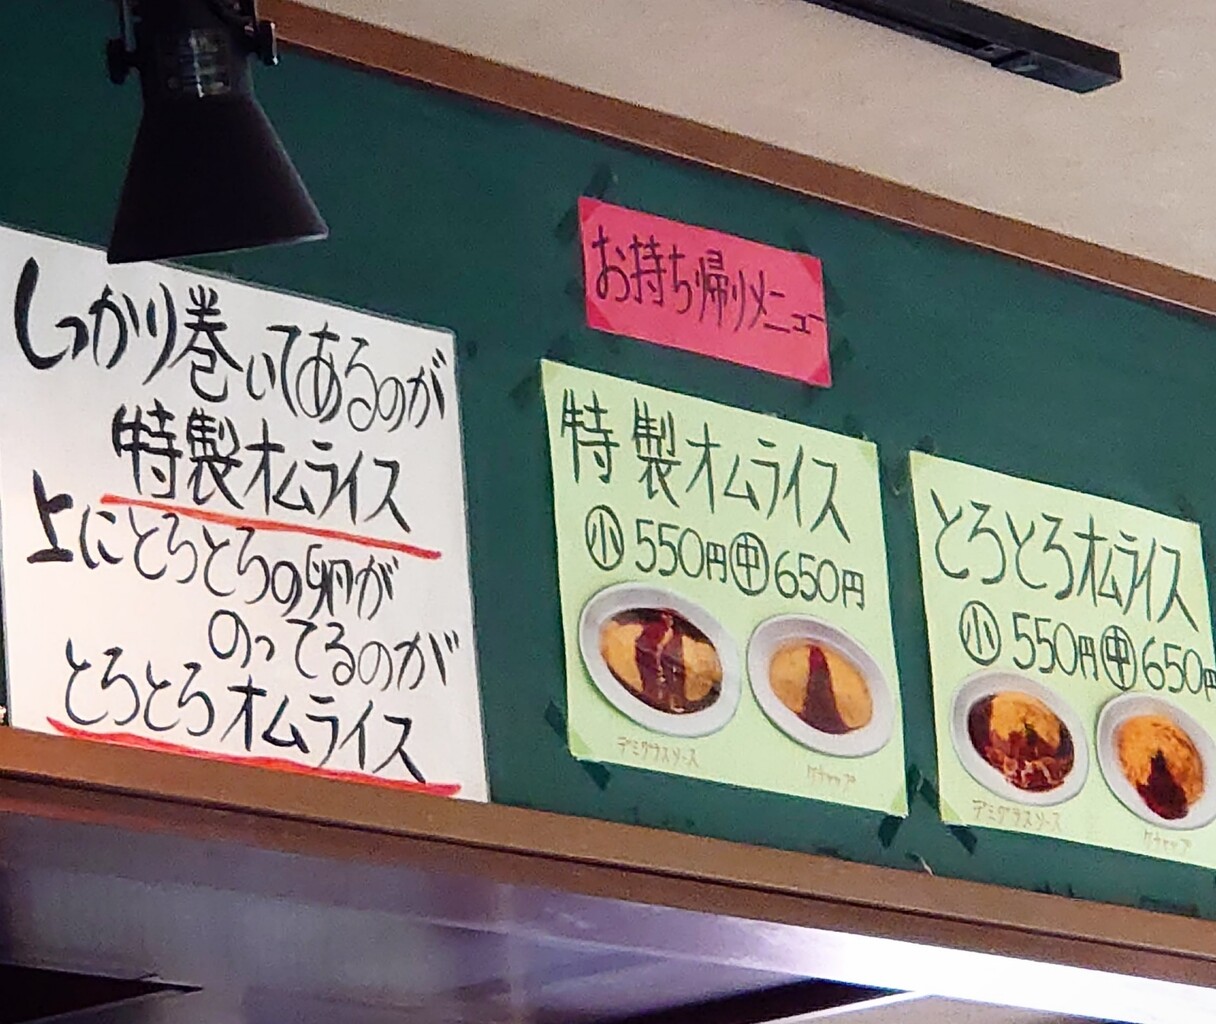 しっかり巻いてあるのが
特製オムライス
上にとろとろの卵が
のってるのが
とろとろオムライス
お持ち帰りメニュー
特製オムライス
小 550円 中 650円
デミグラスソース
ケチャップ
とろとろオムライス
小 550円 中 650円
デミグラスソース
ケチャップ